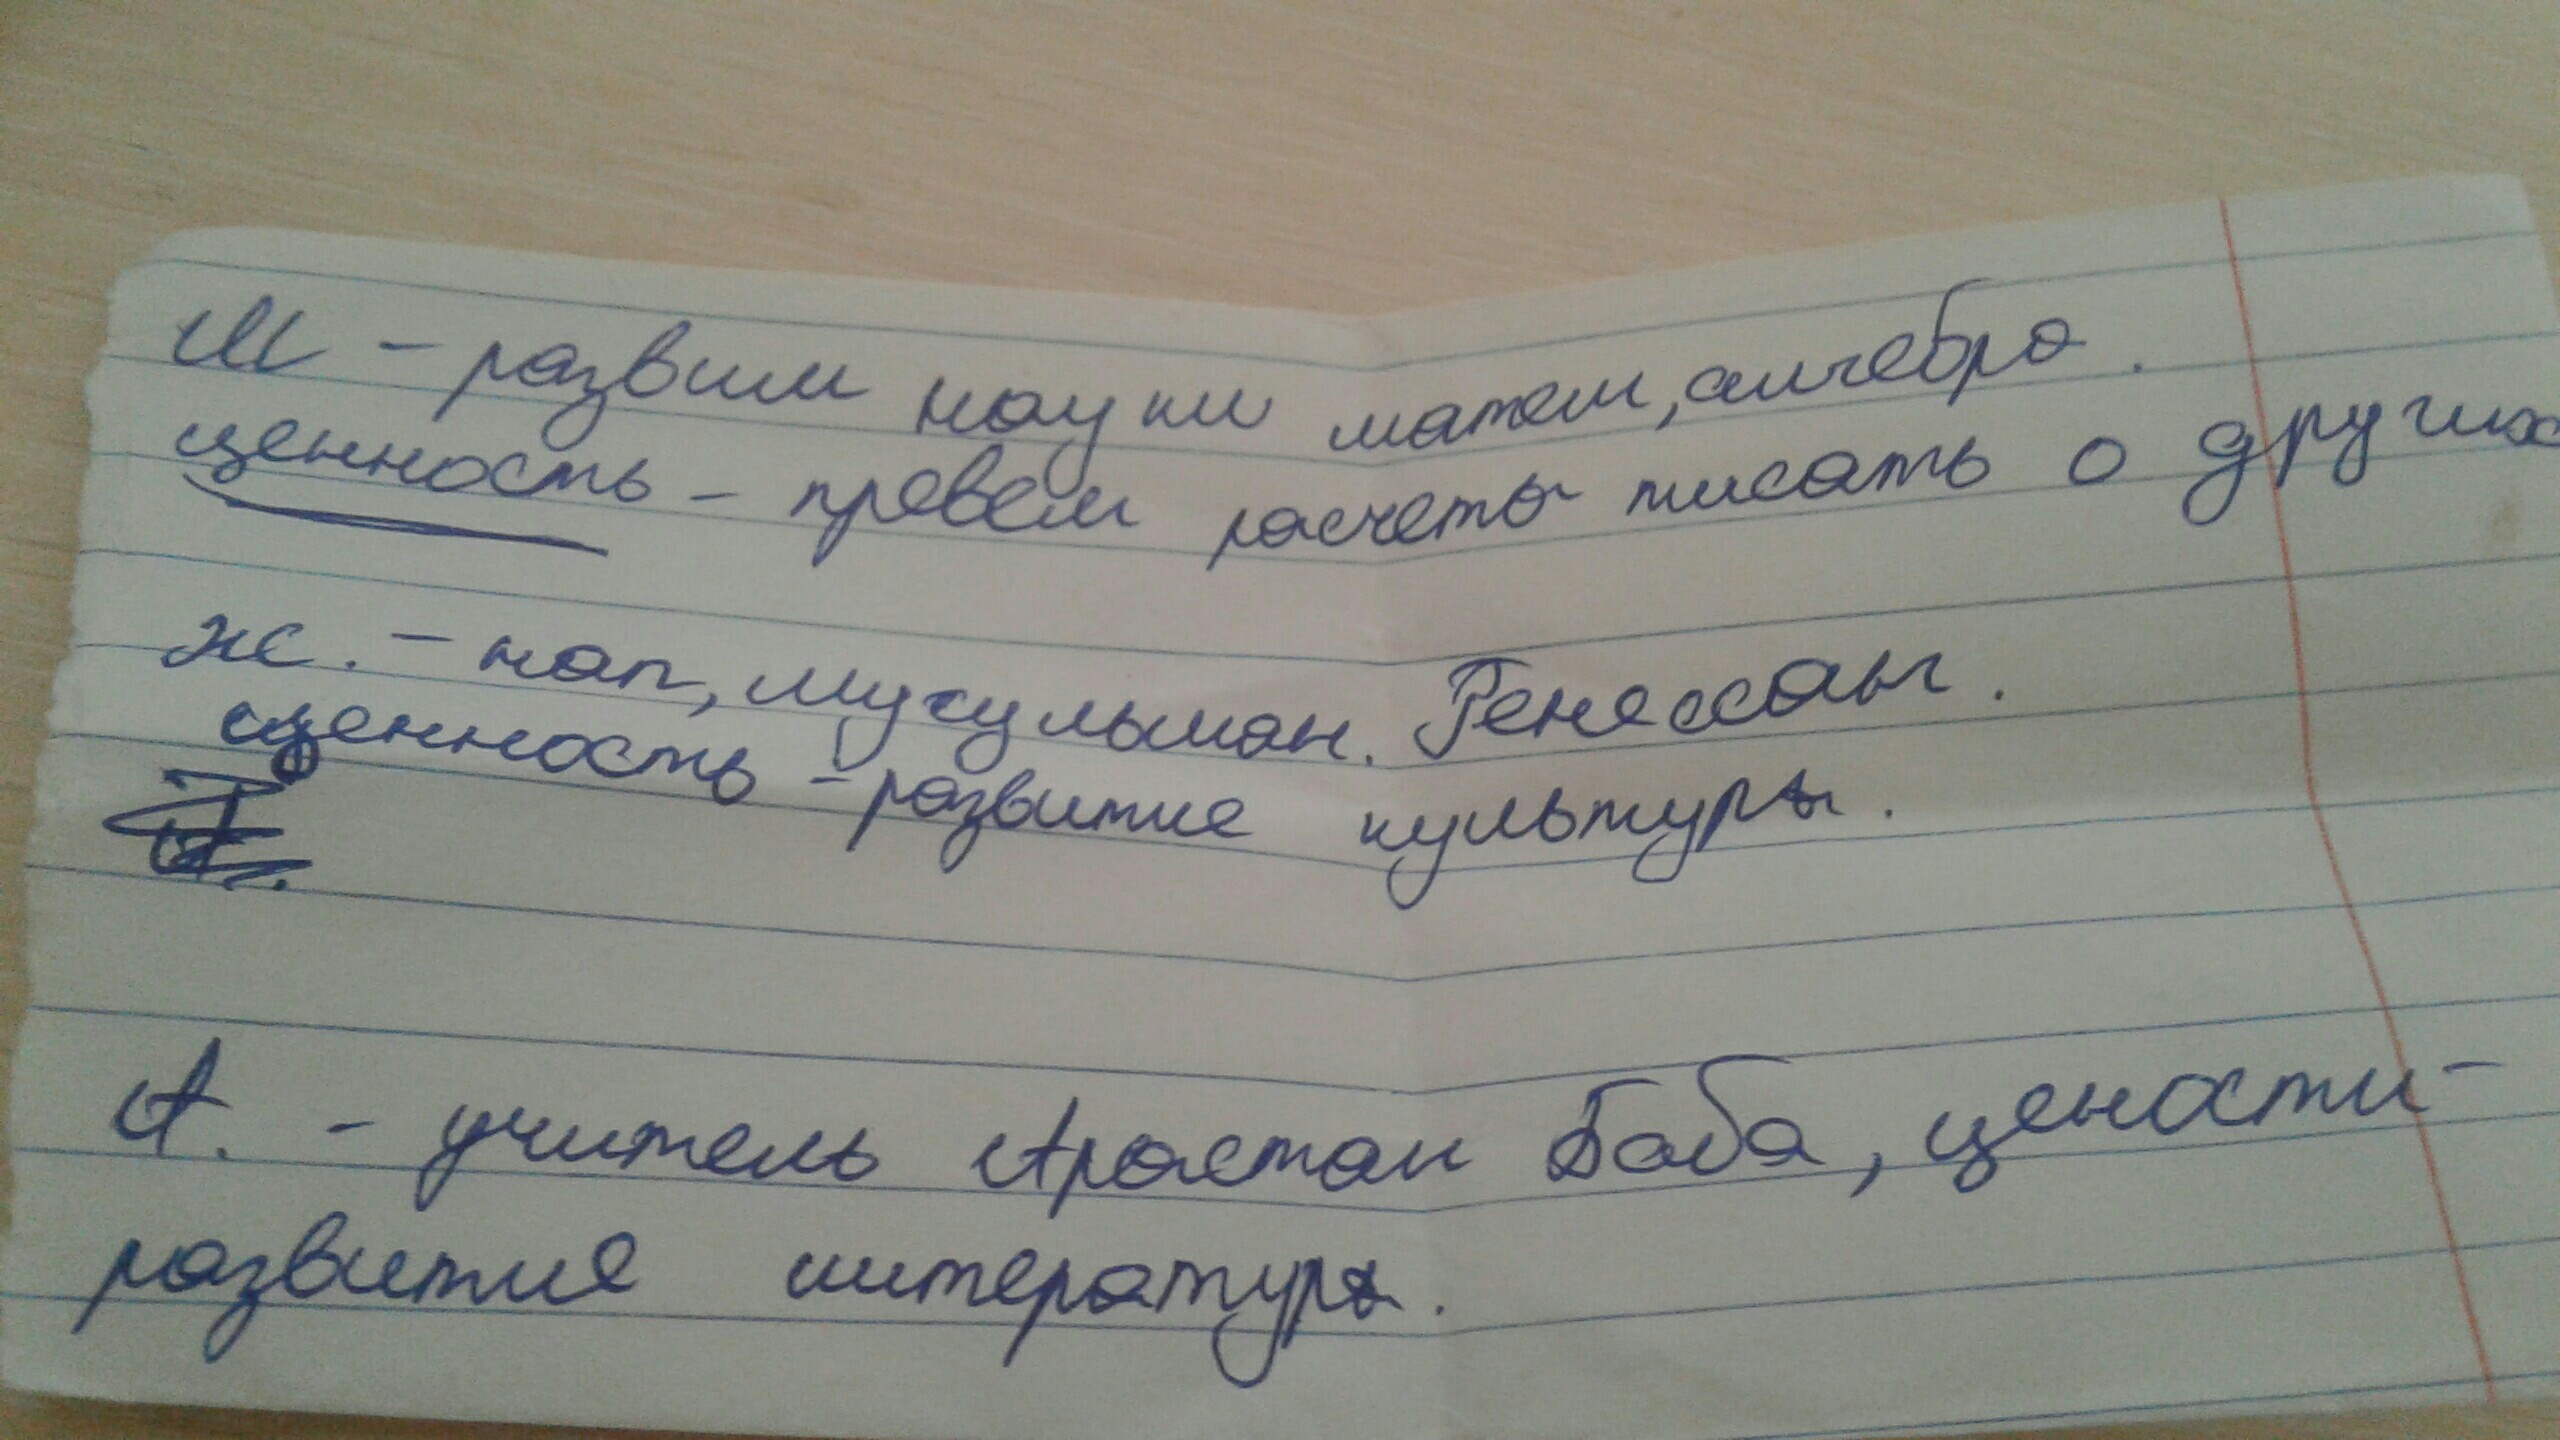 Ш - развил науки матем, алгебра.
ценность - превел расчеты писать о других
Ж. - нап, мусульман. Ренессанс.
ценность - развитие культуры.
А. - учитель Арыстан Баба, цености -
развитие литературы.